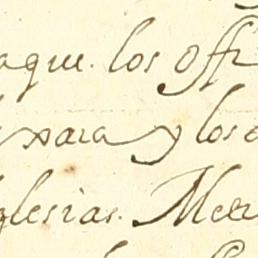 aque. los offi
xara y los
glesias. Mer